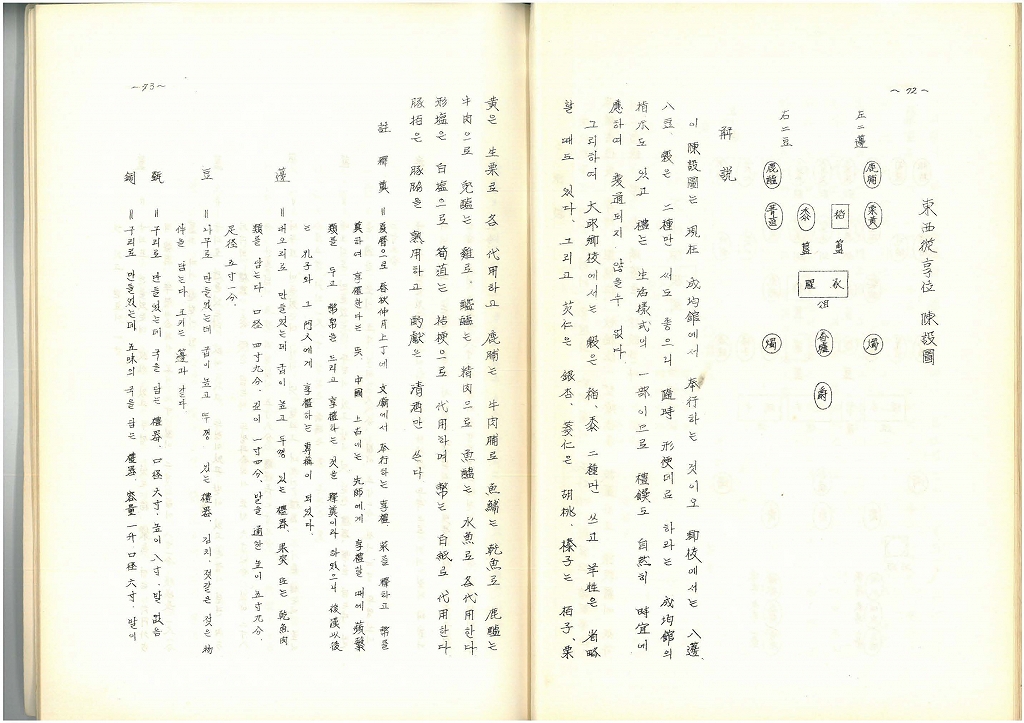 ~72~
東西從享位 陳設圖
左二籩
右二豆
鹿脯
栗黃
稻
黍
菁菹
鹿醢
簠
簋
豕腥
俎
燭
香爐
燭
爵
解説
이 陳設圖는 現在 成均館에서 奉行하는 것이오 鄕校에서는 八籩、
八豆、簋은 二種만 써도 좋으니 隨時 形便데로 하라는 成均館의
指示도 있고 禮는 生活樣式의 一部이므로 禮饌도 自然히 時宜에
應하여 變通되지 않을수 없다.
그리하여 大邱鄕校에서는 簋은 稻、黍 二種만 쓰고 羊牲은 省略
할 때도 있다、그리고 芡仁은 銀杏、菱仁은 胡桃、榛子는 栢子、栗
黃은 生栗로 各 代用하고 鹿脯는 牛肉脯로 魚鱐는 乾魚로 鹿醢는
牛肉으로 兎醢는 雞로、醓醢는 精肉으로 魚醢는 水魚로 各代用한다
形塩은 白塩으로 筍菹는 桔梗으로 代用하며 幣는 白紙로 代用한다
豚拍은 豚脇을 熟用하고 酌獻은 清酒만 쓴다.
註 釋奠 = 夏曆으로 春秋仲月上丁에 文廟에서 奉行하는 享禮 菜를 釋하고 幣를
奠하여 享禮한다는 뜻、中國 上古에는 先師에게 享禮할 때에 蘋蘩
類를 두고 幣帛을 드리고 享禮하는 것을 釋奠이라 하였으니 後漢以後
는 孔子와 그 門人에게 享禮하는 專稱이 되었다.
籩 = 대오리로 만들었는데 굽이 높고 두껑 있는 禮器、果実 또는 乾魚肉
類를 담는다 口径 四寸九分、깊이 一寸四分、발을 通한 높이 五寸九分、
足径 五寸一分.
豆 = 나무로 만들었는데 굽이 높고 두껑 있는 禮器、김치、젓같은 젖은 物
件을 담는다 크기는 籩과 같다
甑 = 구리로 만들었는데 국을 담는 禮器、口径 六寸、높이 八寸、발 없음
鉶 = 구리로 만들었는데 五味의 국을 담는 禮器、容量 一升 口径 六寸、발이
~73~